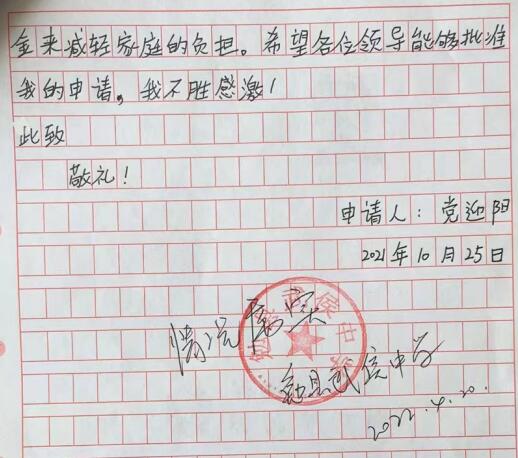 金来减轻家庭的负担。希望各位领导能够批准
我的申请，我不胜感激！
此致
敬礼！
申请人：党迎阳
2021年10月25日
情况属实
勉县武侯中学
2022.4.20.
勉县武侯中学